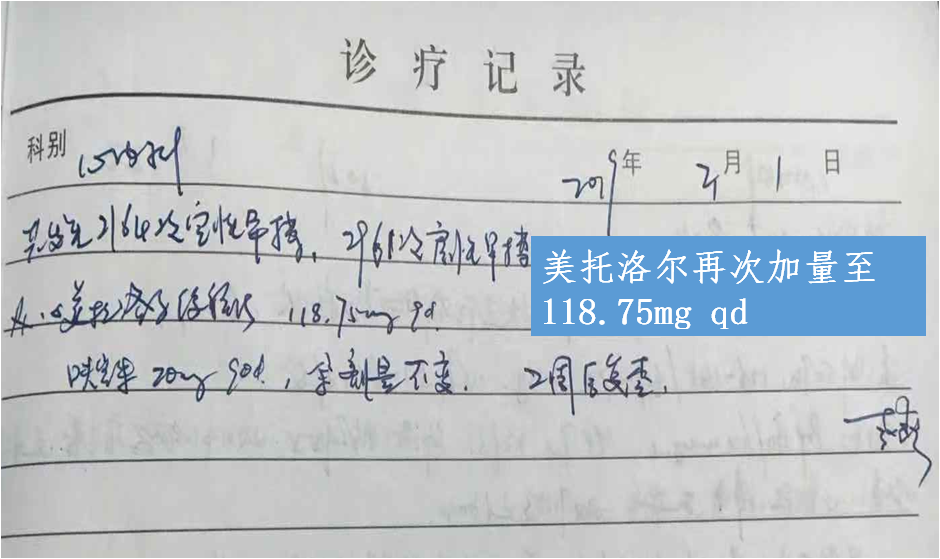 诊疗记录
科别 心内科
2019年 2月 1日
共发生2164次室性早搏，2961次房性早搏
美托洛尔再次加量至
118.75mg qd
美托洛尔缓释片 118.75mg qd.
呋塞米 20mg qod，余剂量不变. 2周后复查.